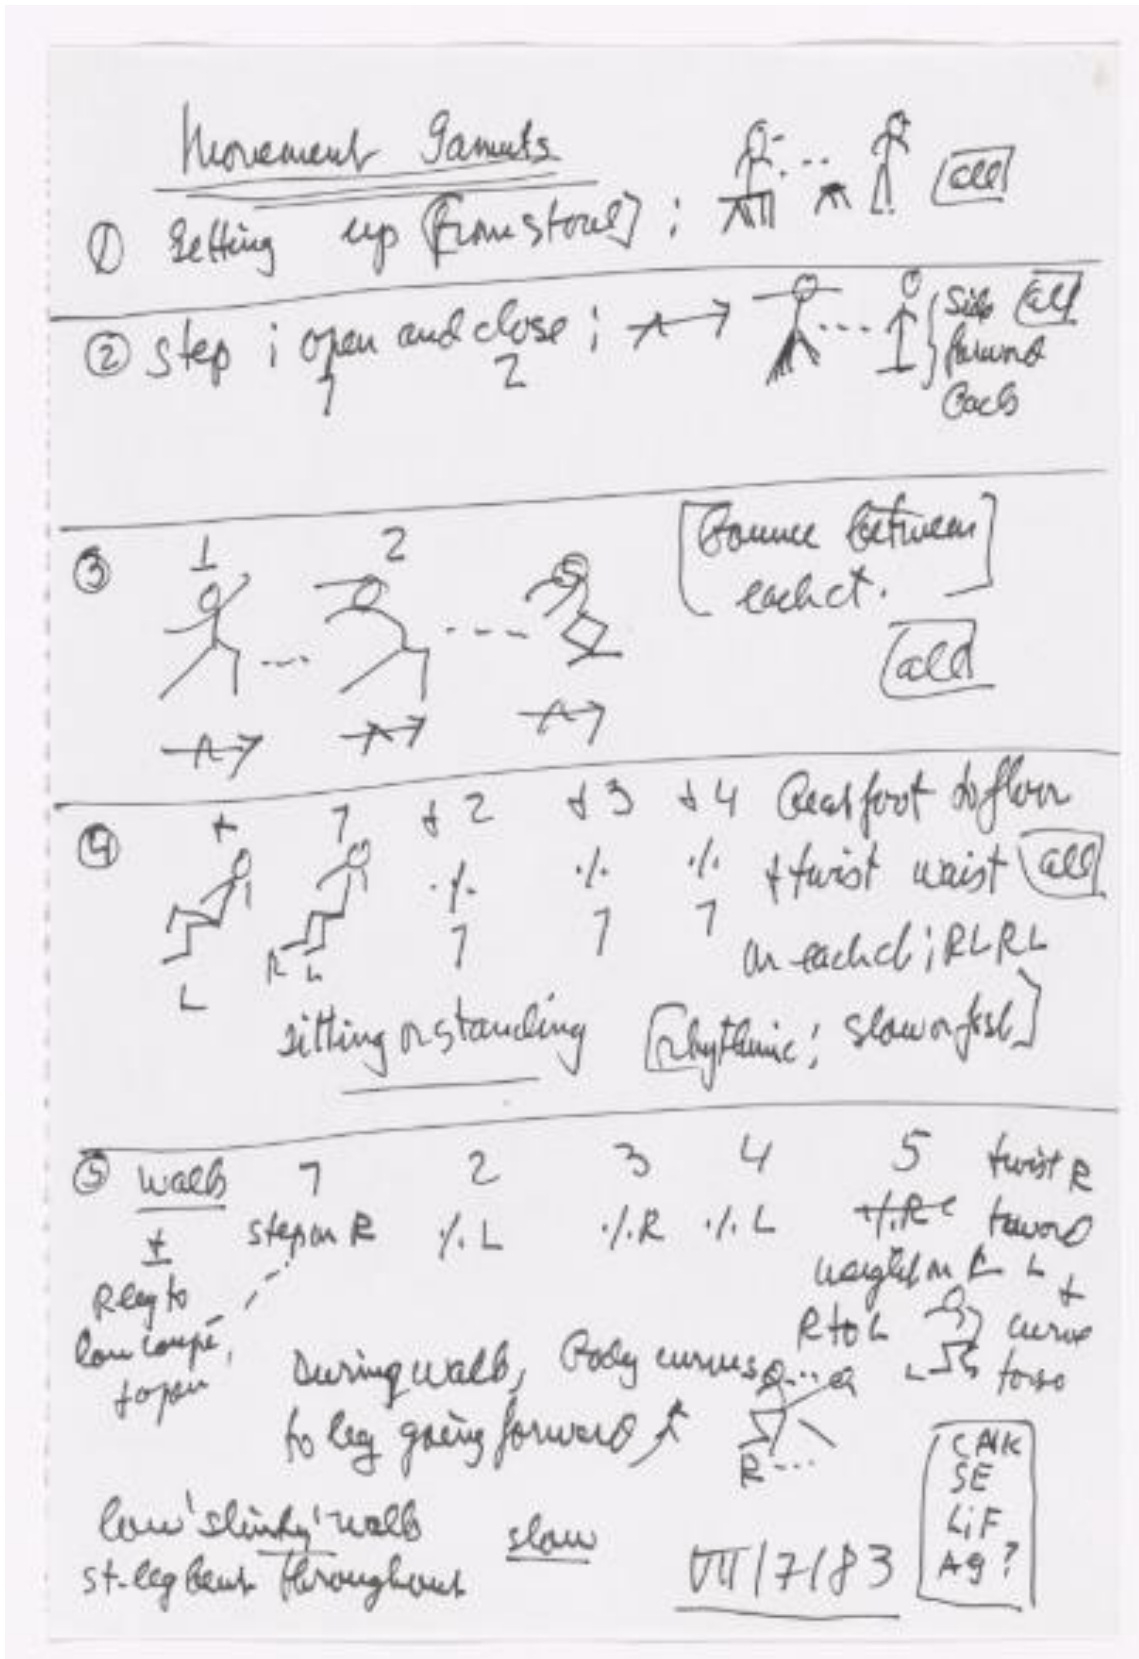 Movement Gamuts
① Getting up [from stool] ; all
② step ; open and close ; side all
1 2 forward
back
③ 1 2 [Bounce between
each ct.]
all
④ + 1 + 2 + 3 + 4 beat foot to floor
·/· ·/· ·/· + twist waist all
1 1 1 on each ct ; RLRL
L R L
sitting or standing [rhythmic ; slow or fast]
⑤ walk 1 2 3 4 5 twist R
± step on R ·/· L ·/· R ·/· L toward
R leg to weight on L +
low coupé, R to L curve
to open torso
During walk, Body curves
to leg going forward
R
low 'slinky' walk slow
st-leg bent throughout
VII/7/83
CAK
SE
LiF
Ag?